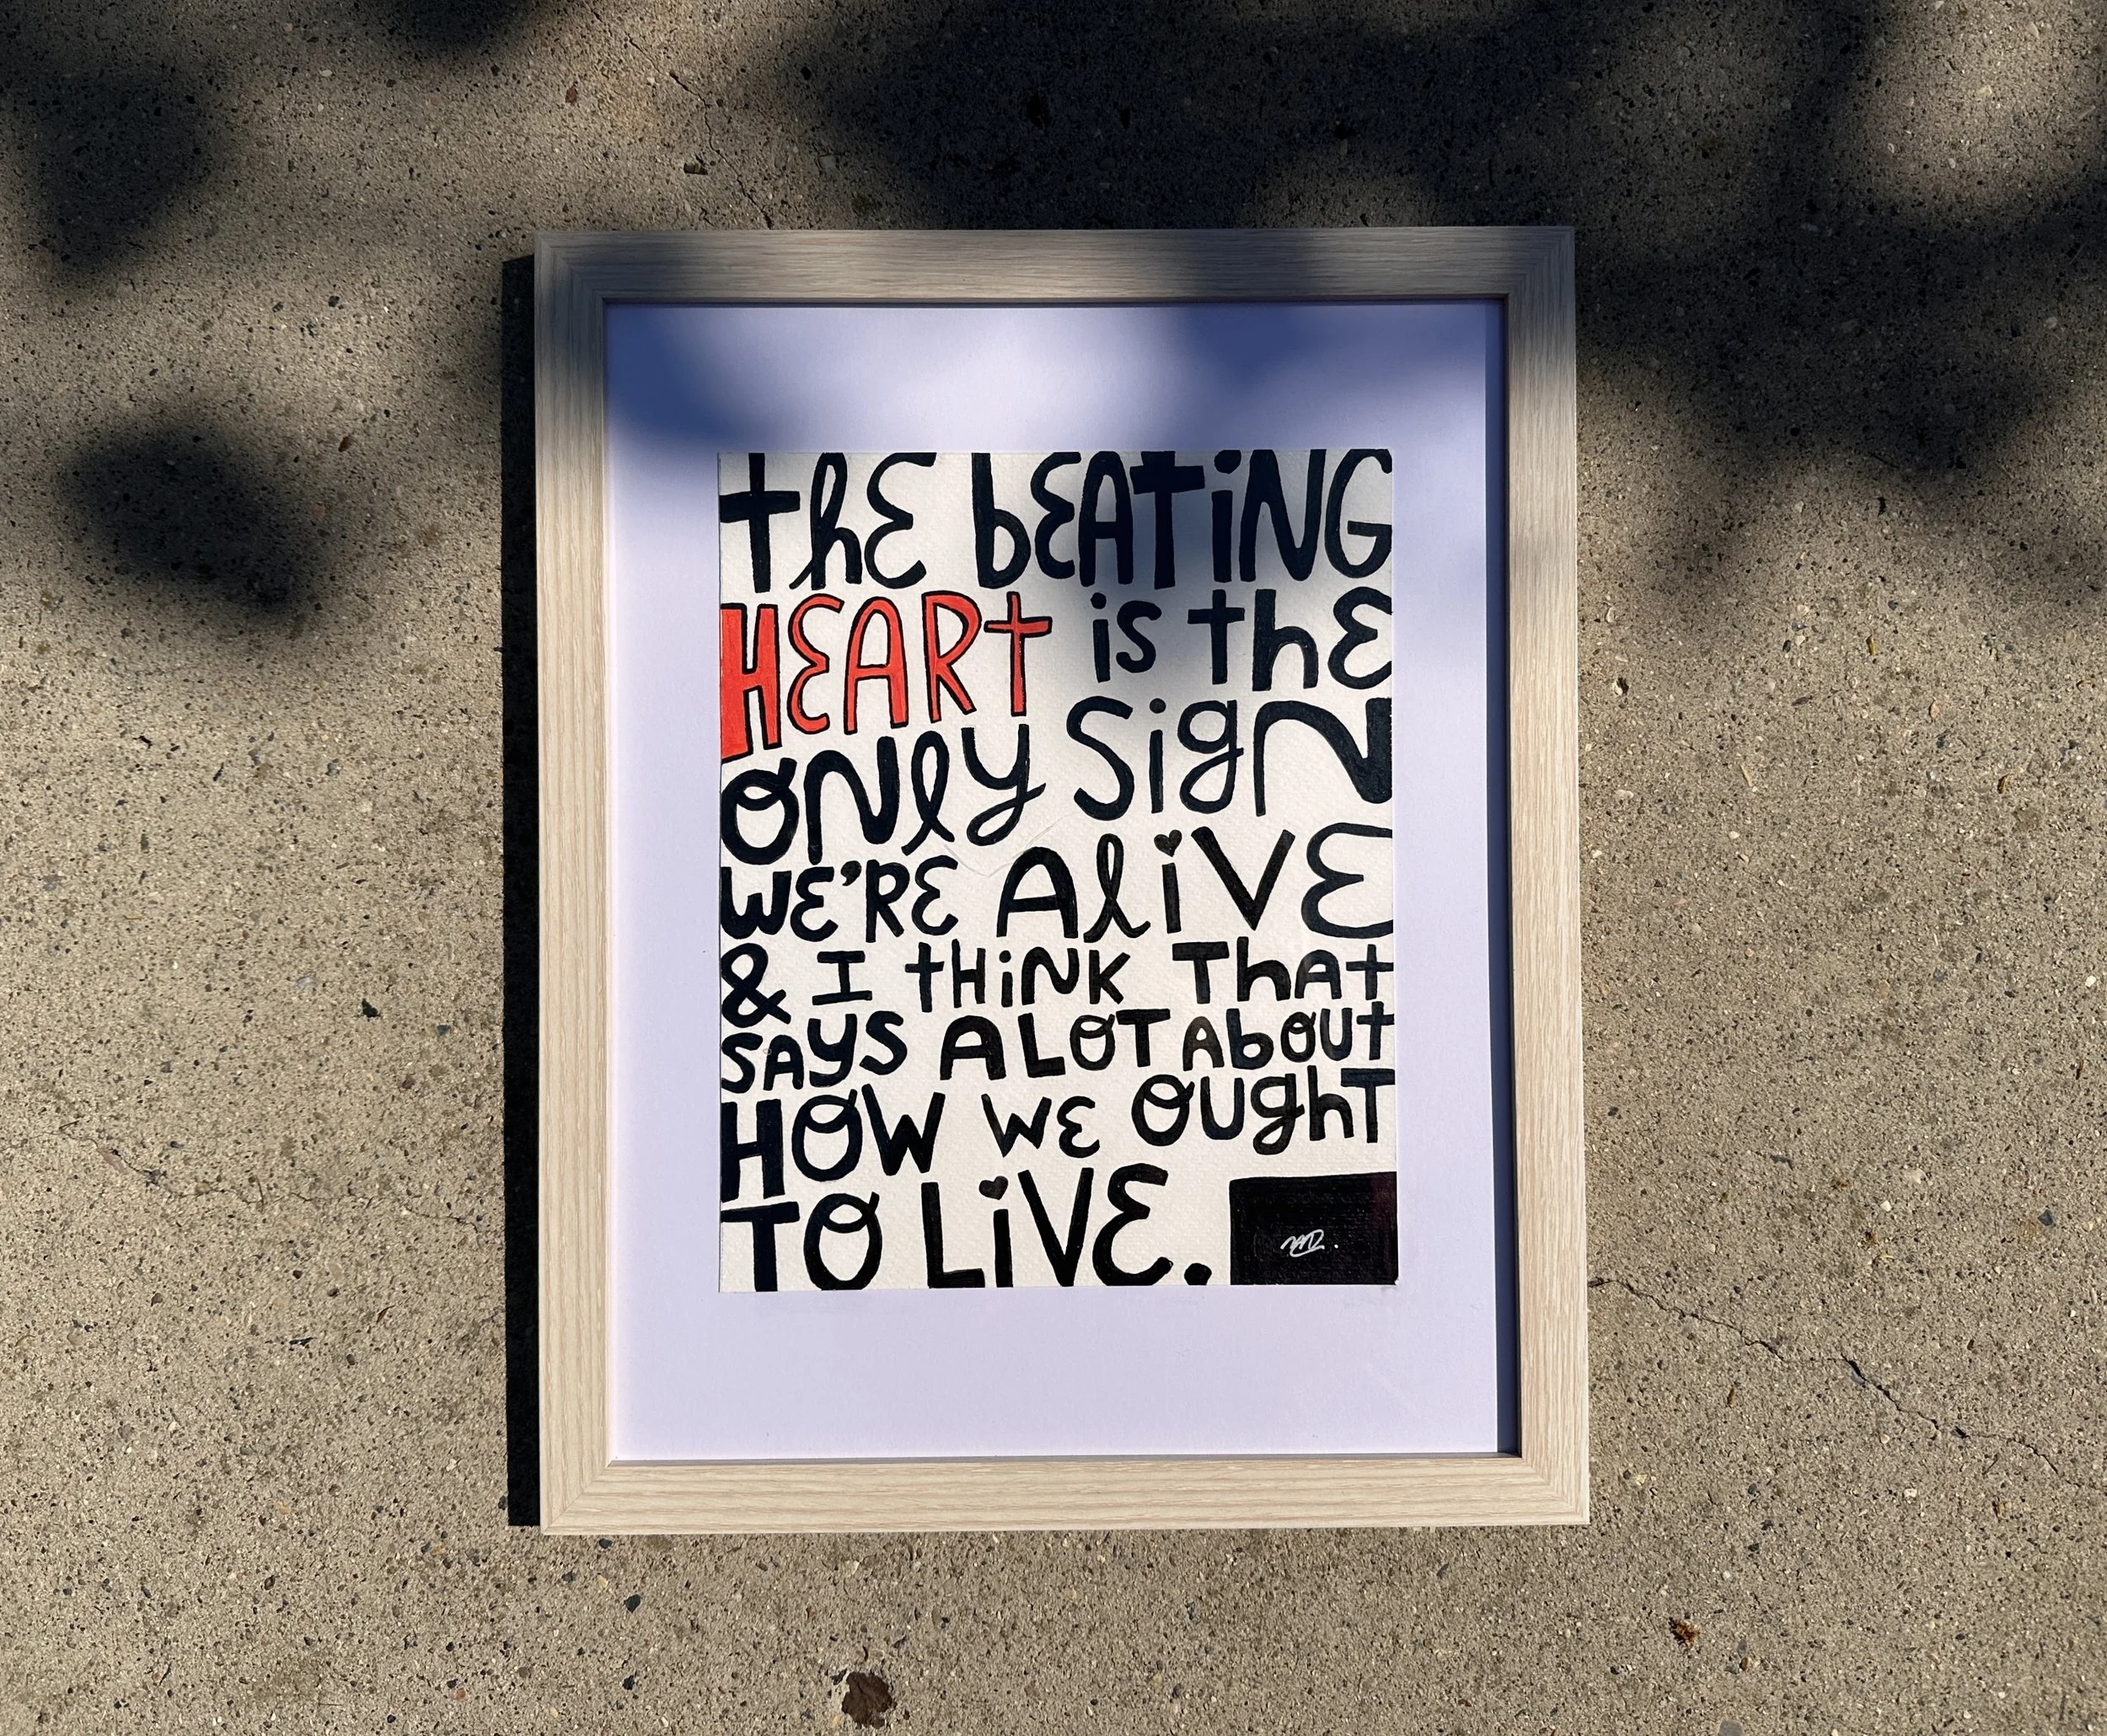 thE bEATiNG
HEARt is thE
ONly SigN
WE'RE AliVE
& I tHiNK ThAt
SAyS A LOT AbOUt
HOW WE OUghT
TO LiVE.